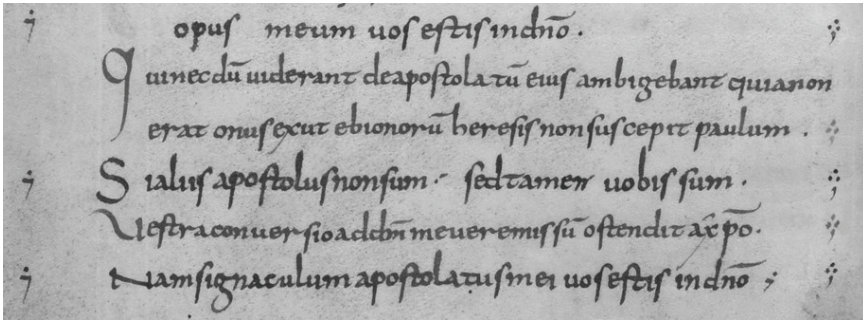 opus meum uos estis indnō.
Qui necdū uiderant de apostolatū eius ambigebant quia non
erat onus ex ut ebionorū heresis non suscepit paulum.
Si aliis apostolus non sum. sed tamen uobis sum.
Uestra conuersio ad dnm me uere missū ostendit a xpō.
Nam signaculum apostolatus mei uos estis indnō;